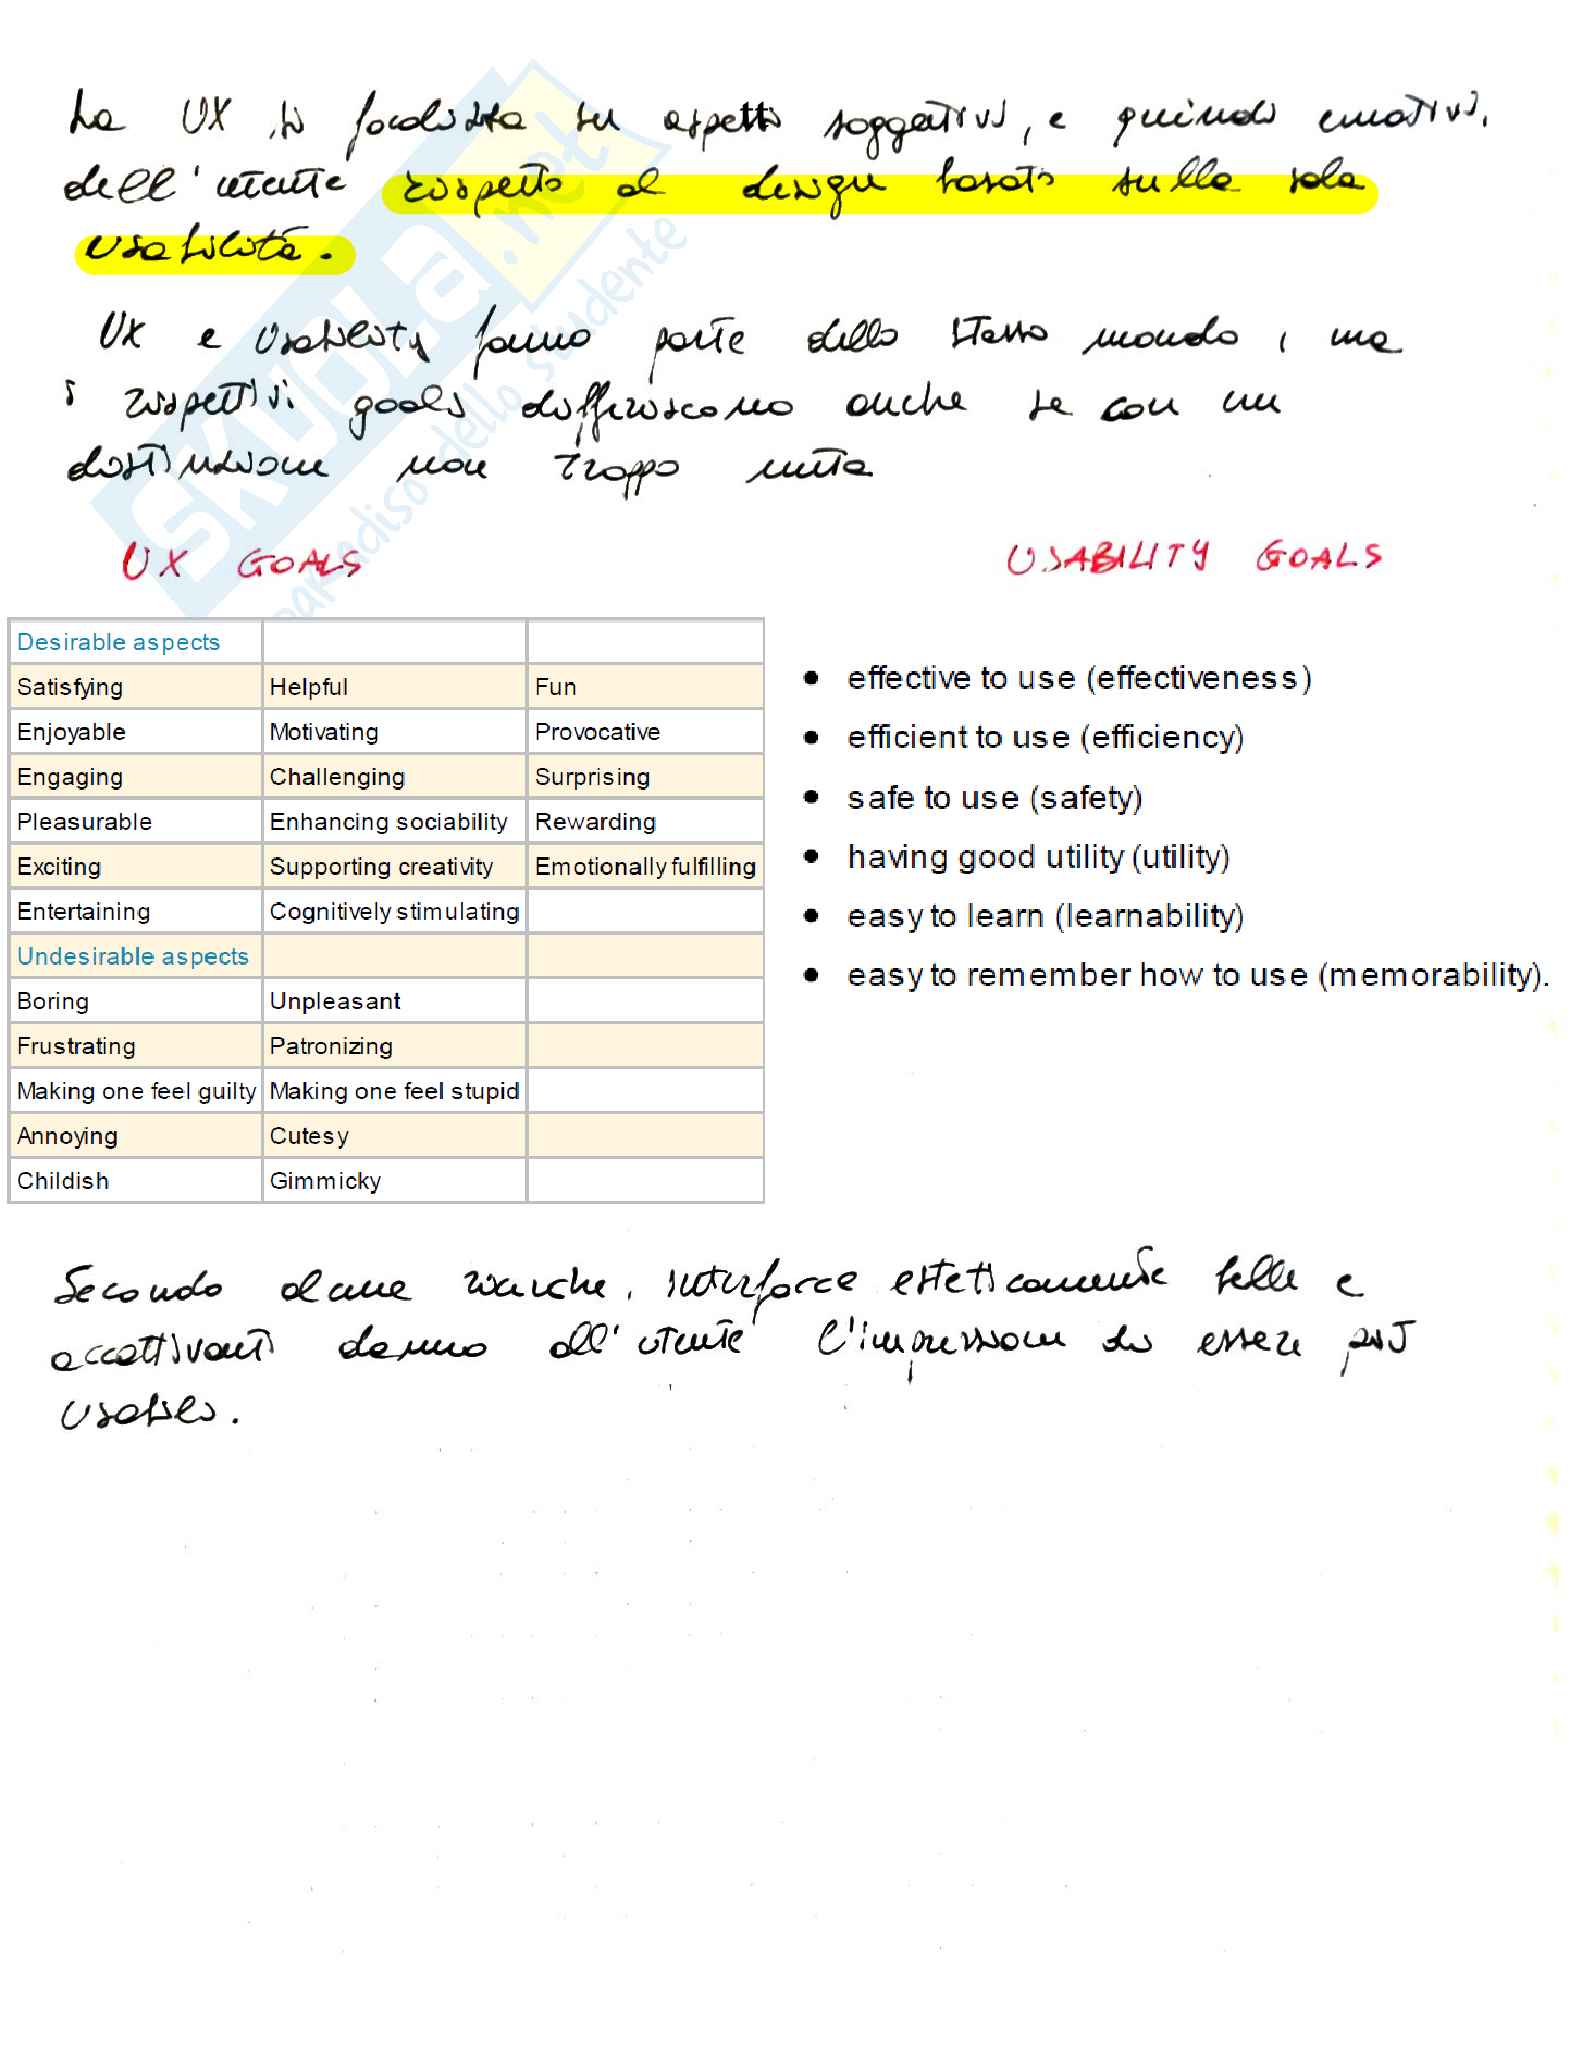 La UX si focalizza su aspetti soggettivi, e quindi emotivi,
dell'utente rispetto al design basato sulla sola
usabilità.
UX e Usability fanno parte dello stesso mondo, ma
i rispettivi goals differiscono anche se con un
distinzione non troppo netta
UX GOALS
USABILITY GOALS
Desirable aspects
Satisfying Helpful Fun
Enjoyable Motivating Provocative
Engaging Challenging Surprising
Pleasurable Enhancing sociability Rewarding
Exciting Supporting creativity Emotionally fulfilling
Entertaining Cognitively stimulating
Undesirable aspects
Boring Unpleasant
Frustrating Patronizing
Making one feel guilty Making one feel stupid
Annoying Cutesy
Childish Gimmicky
• effective to use (effectiveness)
• efficient to use (efficiency)
• safe to use (safety)
• having good utility (utility)
• easy to learn (learnability)
• easy to remember how to use (memorability).
Secondo alcune ricerche, interfacce esteticamente belle e
accattivanti danno all'utente l'impressione di essere più
usabili.
SKUOLA.net
paradiso dello studente